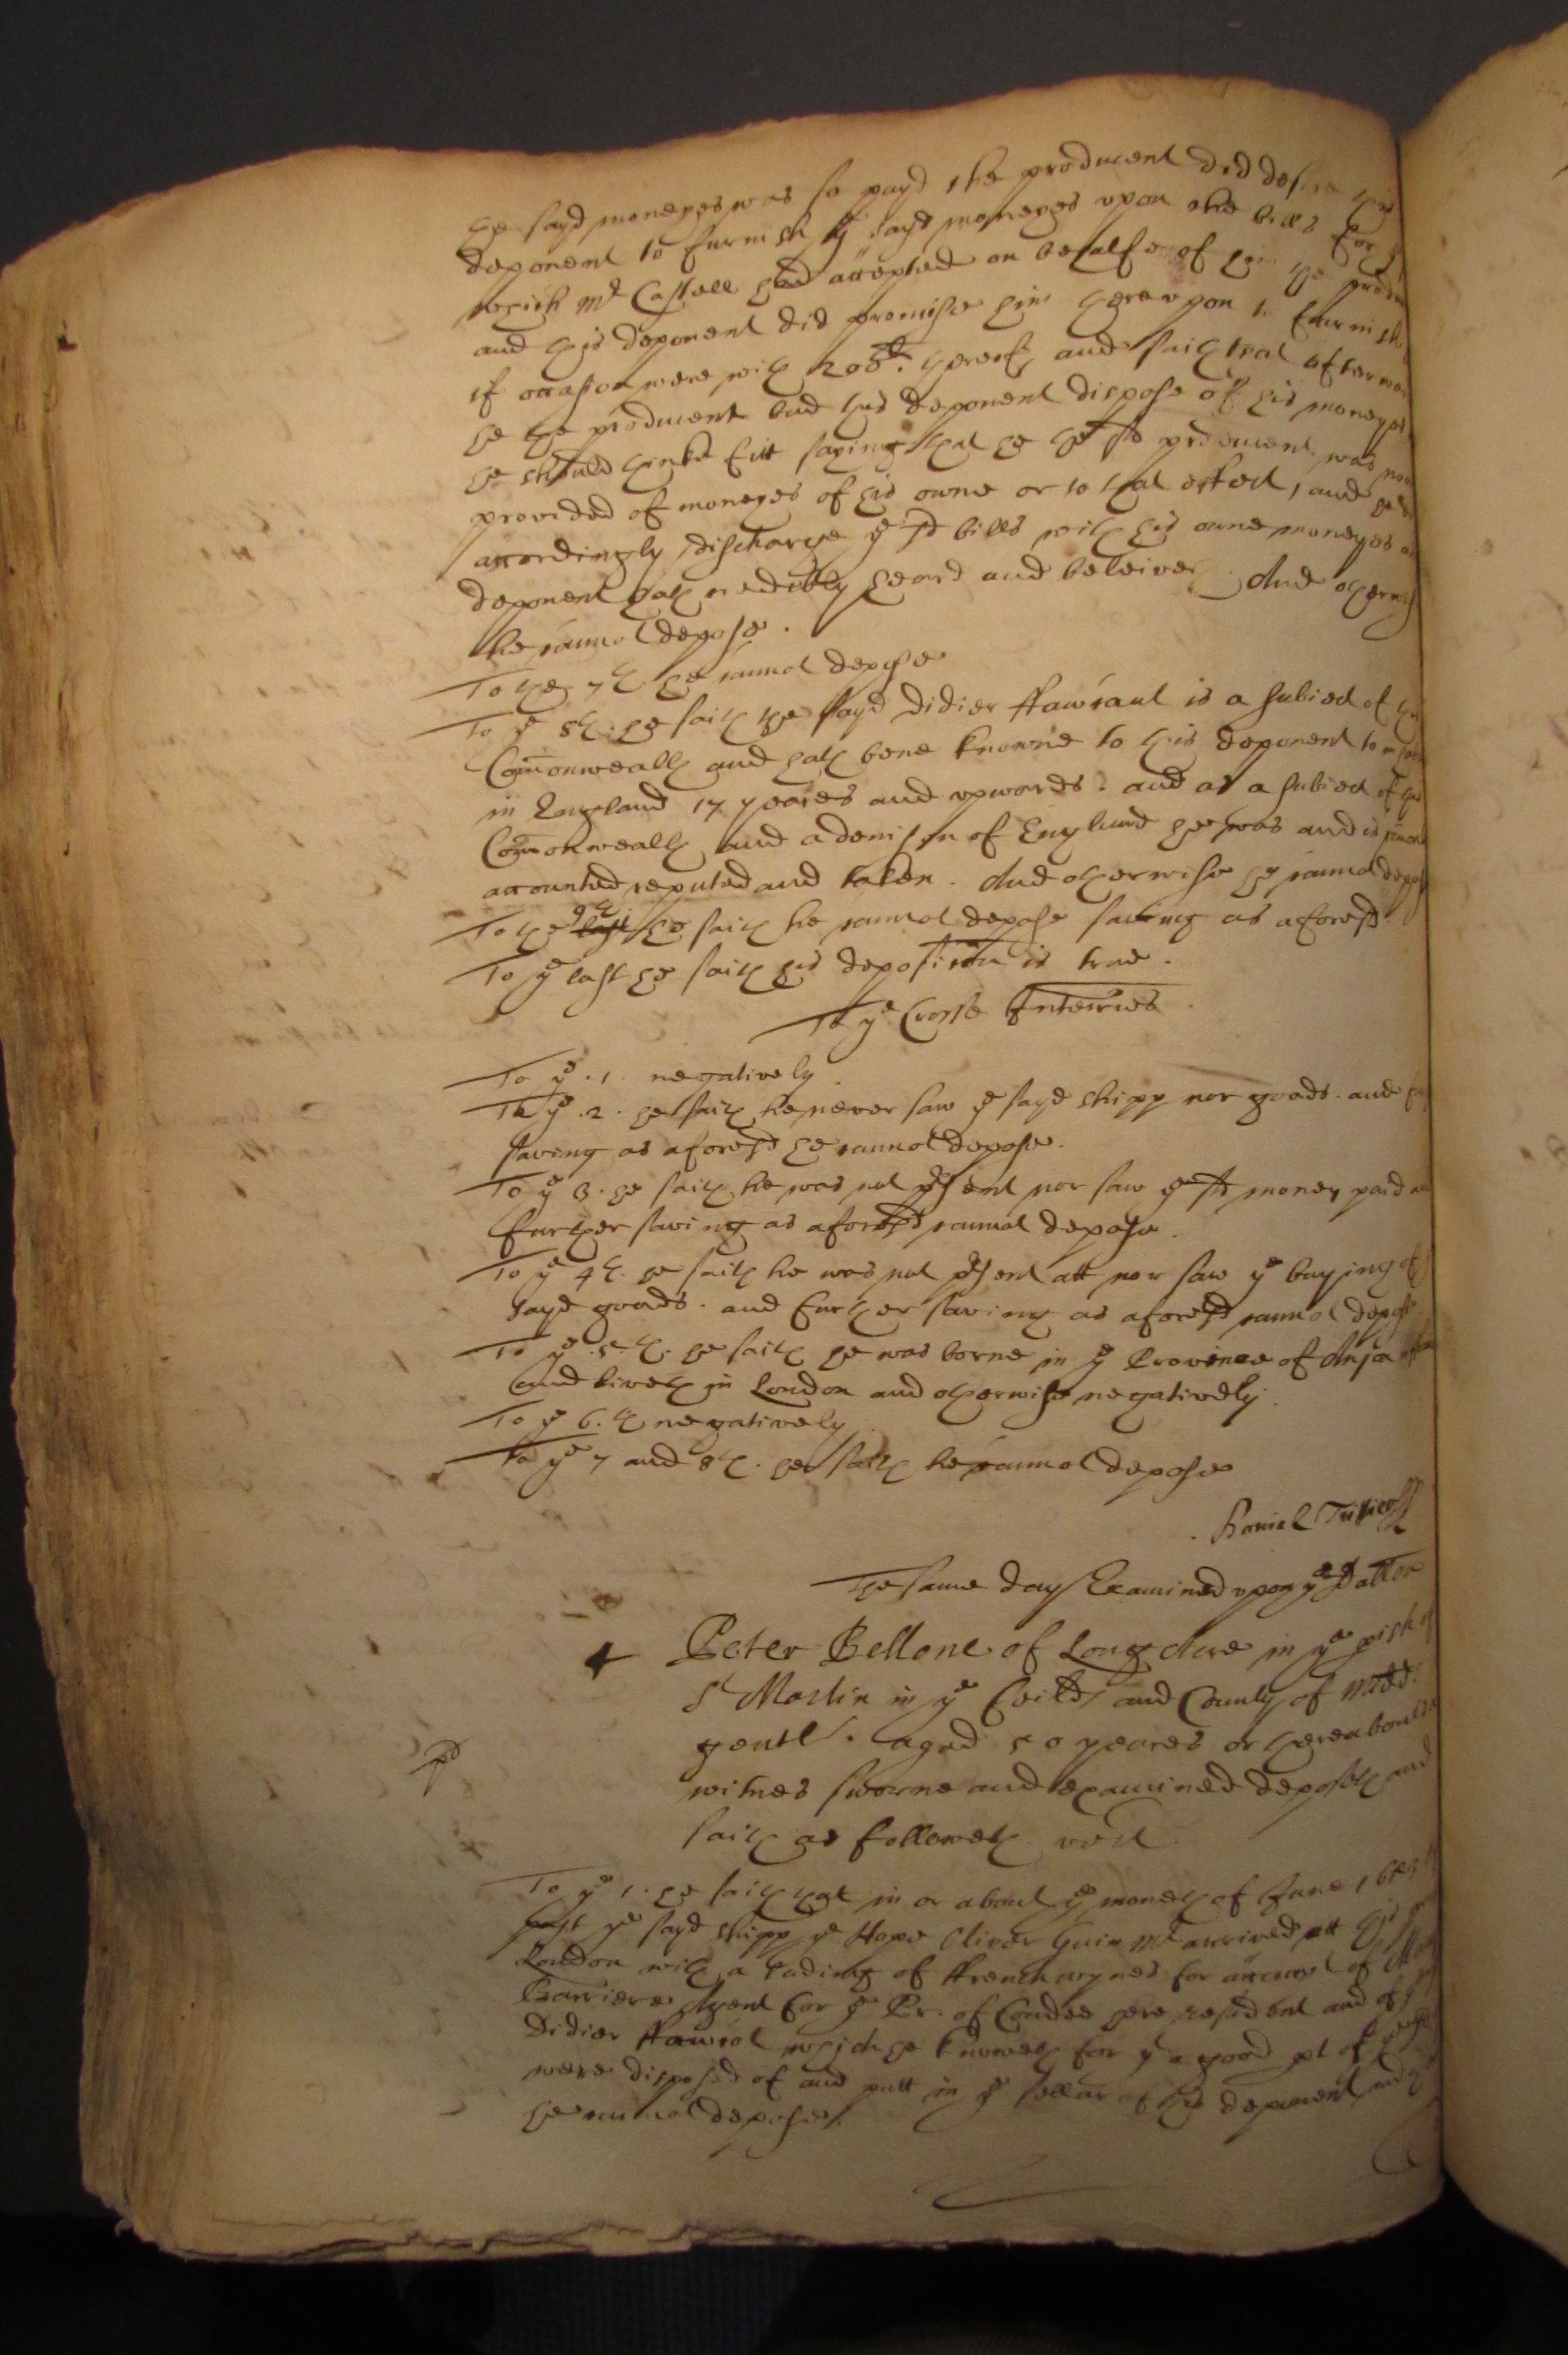 the sayd moneyes was so payd the producent did desire this
deponent to furnish ye sayd moneyes upon the bills for
which Mr Castell had accepted on behalfe of him the produ
and this deponent did promise him thereupon to furnish
if occasion were with 200li. thereof, and saith that afterwar
he the producent bad this deponent dispose of his moneyes
he should thinke fitt saying that he the sd producent was now
provided of moneyes of his owne or to that effect, and he
accordingly discharge ye sd bills with his owne moneyes as
deponent hath credibly heard and beleiveth. And otherwise
he cannot depose.
To the 7th. he cannot depose
To ye 8th. he saith the sayd Didier ffawcaut is a subiect of this
Comonwealth and hath bene knowne to this deponent to
in England 17 yeares and upwards. and as a subiect of this
Comonwealth and a denison of England hee was and is comonly
accounted reputed and taken. And otherwise he cannot depose
To the 9th last he saith he cannot depose saving as aforesd.
To ye last he saith his deposicon is true.
To ye Crosse Interries.
To ye .1. negatively.
To ye .2. he saith he never saw ye sayd shipp nor goods. and
saving as aforesd he cannot depose.
To ye 3. he saith he was not present nor saw ye sd money paid
further saving as aforesd cannot depose.
To ye 4th. he saith he was not present att nor saw ye buying of
sayd goods. and further saving as aforesd cannot depose
To ye .5th. he saith he was borne in ye Province of Anjou
and liveth in London and otherwise negatively.
To ye 6.th negatively
To ye 7 and 8th. he saith he cannot depose
The same day Examined upon ye sd allon
Peter Bellone of Long Acre in ye pish of
St Martin in ye feilds and County of Midd.
gentl. aged 50 yeares or thereabouts
witnes sworne and examined deposeth and
saith as followeth vizt
To ye 1. he saith that in or about ye moneth of June
past ye sayd shipp ye Hope Oliver Guin Mr arrived att this
London with a lading of ffrench wynes for account of
Barriere Agent for ye Pr. of Condee here resident and of
Didier ffawcot which he knoweth for yt a good pt of
were disposed of and putt in ye sellar of this deponent and
he cannot depose.